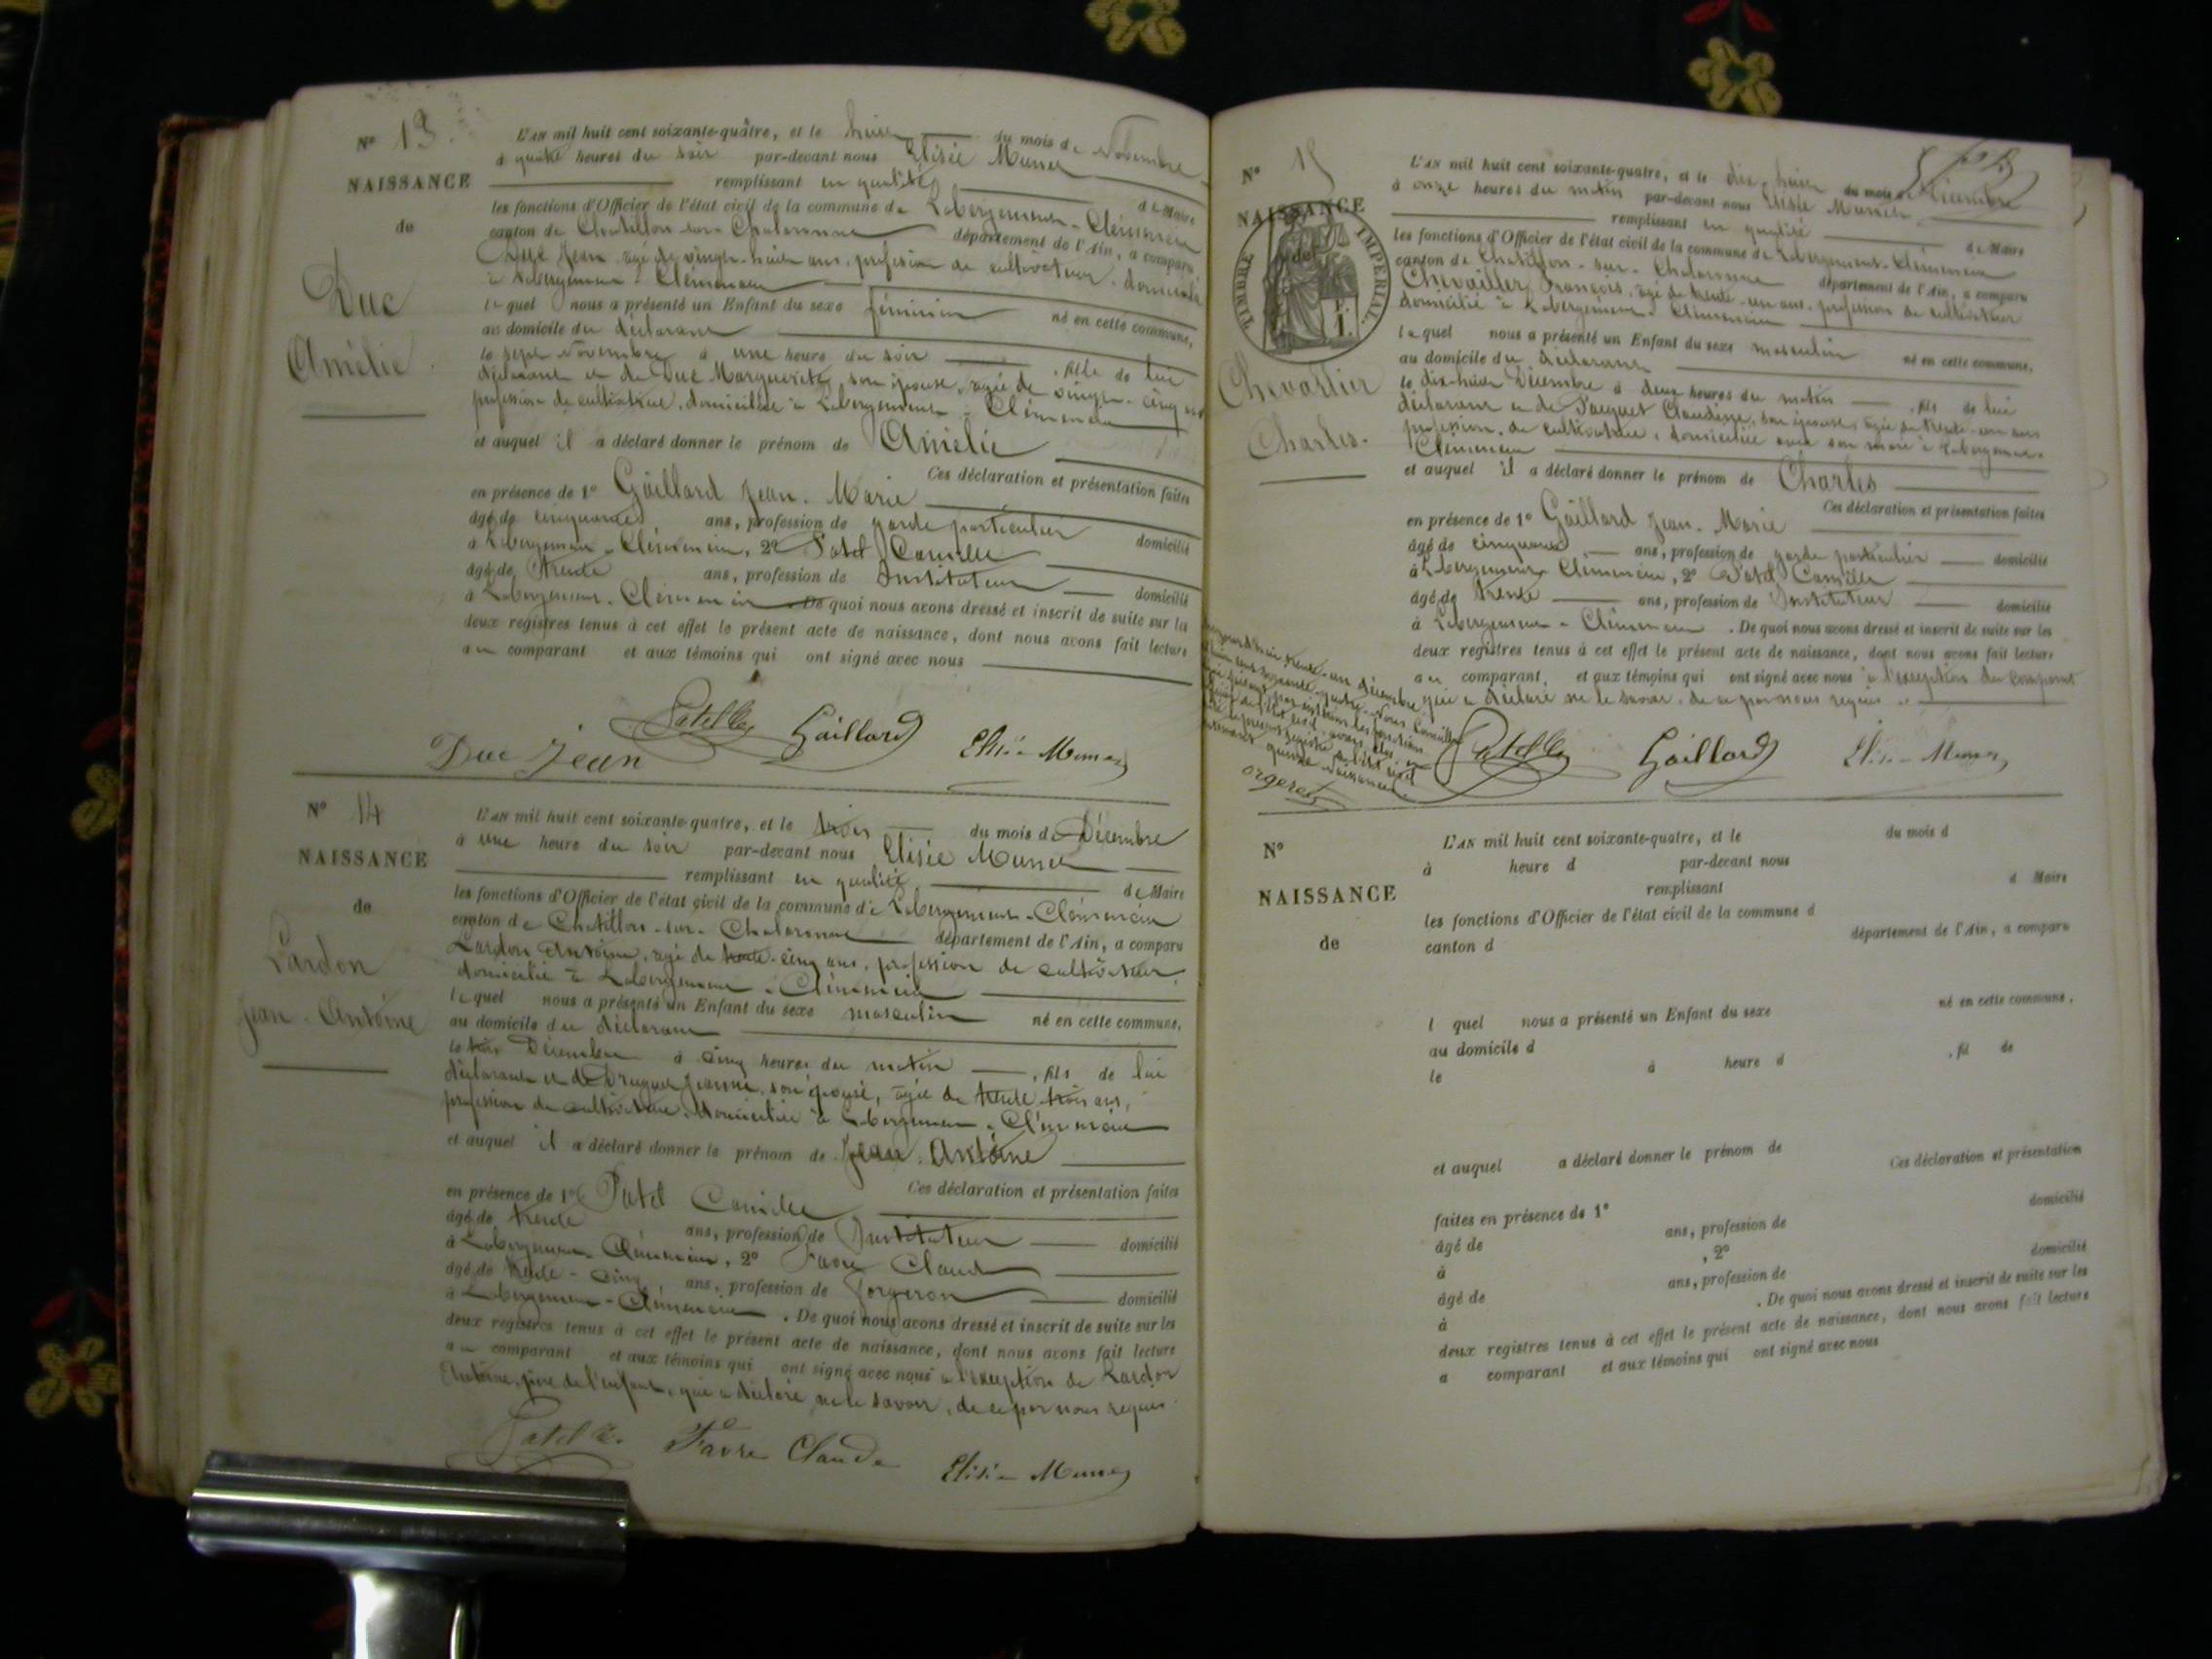 N° 13.
NAISSANCE
de
Duc
Amélie
L'AN mil huit cent soixante-quatre, et le huit du mois de Novembre
à quatre heures du soir par-devant nous Elisée Munier
remplissant en qualité de Maire
les fonctions d'Officier de l'état civil de la commune de L'abergement-Clémencia
canton de Chatillon-sur-Chalaronne département de l'Ain, a comparu
Duc Jean âgé de vingt-huit ans, profession de cultivateur, domicilié
à L'abergement-Clémencia
lequel nous a présenté un Enfant du sexe féminin né en cette commune,
au domicile du déclarant
le sept Novembre à une heure du soir, fille de lui
déclarant et de Duc Marguerite, son épouse, âgée de vingt-cinq ans
profession de cultivatrice, domiciliée à L'abergement-Clémencia
et auquel il a déclaré donner le prénom de Amélie
Ces déclaration et présentation faites
en présence de 1° Gaillard Jean-Marie
âgé de cinquante ans, profession de garde particulier domicilié
à L'abergement-Clémencia, 2° Patel Camille
âgé de trente ans, profession de Instituteur domicilié
à L'abergement-Clémencia. De quoi nous avons dressé et inscrit de suite sur les
deux registres tenus à cet effet le présent acte de naissance, dont nous avons fait lecture
au comparant et aux témoins qui ont signé avec nous
Duc Jean Patel C. Gaillard Elisée Munier
N° 14
NAISSANCE
de
Lardon
Jean-Antoine
L'AN mil huit cent soixante-quatre, et le trois du mois de Décembre
à une heure du soir par-devant nous Elisée Munier
remplissant en qualité de Maire
les fonctions d'Officier de l'état civil de la commune de L'abergement-Clémencia
canton de Chatillon-sur-Chalaronne département de l'Ain, a comparu
Lardon Antoine, âgé de trente-cinq ans, profession de cultivateur,
domicilié à L'abergement-Clémencia
lequel nous a présenté un Enfant du sexe masculin né en cette commune,
au domicile du déclarant
le trois Décembre à cinq heures du matin, fils de lui
déclarant et de Druguet Jeanne, son épouse, âgée de trente trois ans,
profession de cultivatrice, domiciliée à L'abergement-Clémencia
et auquel il a déclaré donner le prénom de Jean-Antoine
Ces déclaration et présentation faites
en présence de 1° Patel Camille
âgé de trente ans, profession de Instituteur domicilié
à L'abergement-Clémencia, 2° Favre Claude
âgé de trente-cinq, ans, profession de forgeron domicilié
à L'abergement-Clémencia. De quoi nous avons dressé et inscrit de suite sur les
deux registres tenus à cet effet le présent acte de naissance, dont nous avons fait lecture
au comparant et aux témoins qui ont signé avec nous à l'exception de Lardon
Antoine, père de l'enfant, qui a déclaré ne le savoir, de ce par nous requis.
Patel C. Favre Claude Elisée Munier
N° 15
NAISSANCE
de
TIMBRE IMPERIAL
Chevallier
Charles.
L'AN mil huit cent soixante-quatre, et le dix-huit du mois de Décembre
à onze heures du matin par-devant nous Elisée Munier
remplissant en qualité de Maire
les fonctions d'Officier de l'état civil de la commune de L'abergement-Clémencia
canton de Chatillon-sur-Chalaronne département de l'Ain, a comparu
Chevallier François, âgé de trente-un ans, profession de cultivateur
domicilié à L'abergement-Clémencia
lequel nous a présenté un Enfant du sexe masculin né en cette commune,
au domicile du déclarant
le dix-huit Décembre à deux heures du matin, fils de lui
déclarant et de Claudine, son épouse, âgée de trente-un ans
profession de cultivatrice, domiciliée avec son mari à L'abergement-
Clémencia
et auquel il a déclaré donner le prénom de Charles
Ces déclaration et présentation faites
en présence de 1° Gaillard Jean-Marie
âgé de cinquante ans, profession de garde particulier domicilié
à L'abergement-Clémencia, 2° Patel Camille
âgé de trente ans, profession de Instituteur domicilié
à L'abergement-Clémencia. De quoi nous avons dressé et inscrit de suite sur les
deux registres tenus à cet effet le présent acte de naissance, dont nous avons fait lecture
au comparant, et aux témoins qui ont signé avec nous à l'exception du comparant
qui a déclaré ne le savoir, de ce par nous requis.
Patel C. Gaillard Elisée Munier
trente-un décembre
soixante-quatre. Nous
quinze naissances.
N°
NAISSANCE
de
L'AN mil huit cent soixante-quatre, et le du mois d
à heure d par-devant nous
remplissant d Maire
les fonctions d'Officier de l'état civil de la commune d
canton d département de l'Ain, a comparu
l quel nous a présenté un Enfant du sexe né en cette commune,
au domicile d
le à heure d , fil de
et auquel a déclaré donner le prénom de
Ces déclaration et présentation
faites en présence de 1°
âgé de ans, profession de domicilié
à , 2°
âgé de ans, profession de domicilié
à . De quoi nous avons dressé et inscrit de suite sur les
deux registres tenus à cet effet le présent acte de naissance, dont nous avons fait lecture
a comparant et aux témoins qui ont signé avec nous